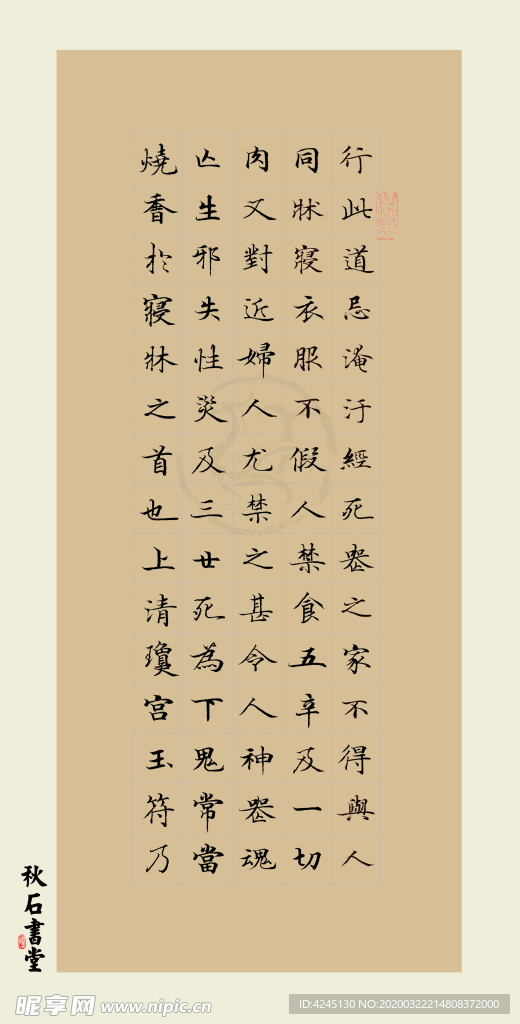 行此道忌淹汙經死喪之家不得與人
同牀寢衣服不假人禁食五辛及一切
肉又對近婦人尤禁之甚令人神喪魂
亡生邪失性災及三世死為下鬼常當
燒香於寢牀之首也上清瓊宫玉符乃
秋石書堂
昵享网 www.nipic.cn
ID:4245130 NO:20200322214808372000